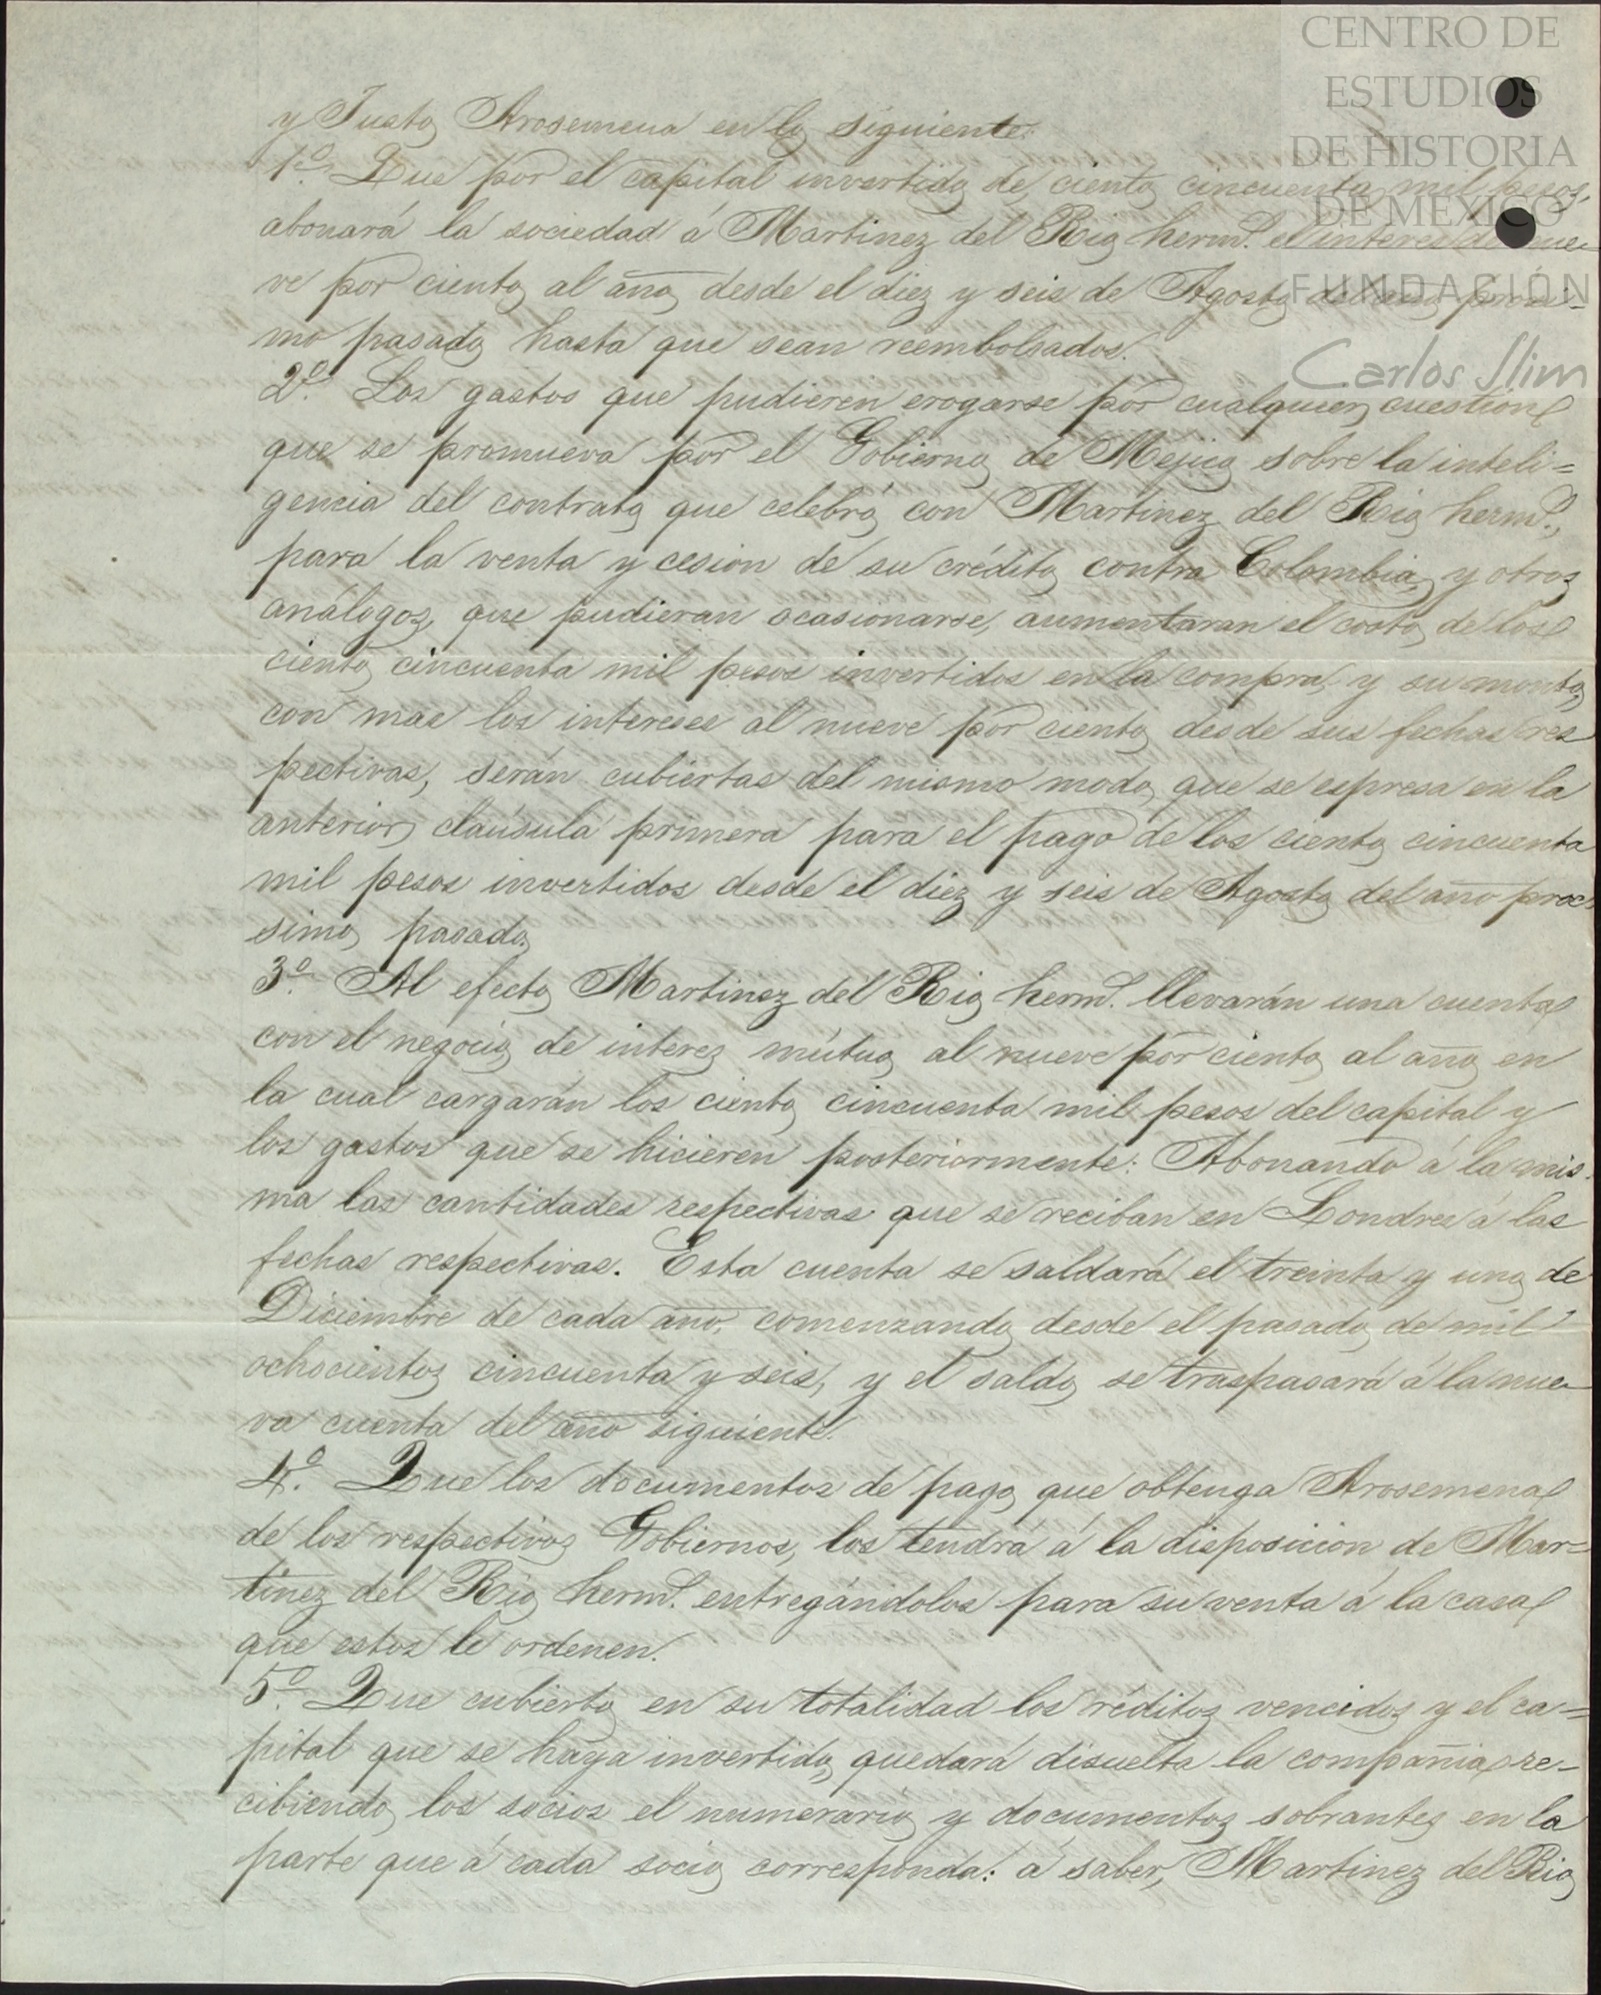 CENTRO DE
ESTUDIOS
DE HISTORIA
DE MÉXICO
FUNDACIÓN
Carlos Slim
y Justo Arosemena en lo siguiente:
1º. Que por el capital invertido de ciento cincuenta mil pesos,
abonará la sociedad á Martinez del Rio hermˢ. el interes de nue-
ve por ciento al año, desde el diez y seis de Agosto del año procsi-
mo pasado hasta que sean reembolsados.
2º. Los gastos que pudieren erogarse por cualquier cuestion
que se promueva por el Gobierno de Mejico sobre la inteli=
gencia del contrato que celebró con Martinez del Rio hermˢ.,
para la venta y cesion de su crédito contra Colombia, y otros
análogos, que pudieran ocasionarse, aumentaran el costo de los
ciento cincuenta mil pesos invertidos en la compra, y su monto,
con mas los intereses al nueve por ciento desde sus fechas res
pectivas, serán cubiertas del mismo modo que se espresa en la
anterior claúsula primera para el pago de los ciento cincuenta
mil pesos invertidos desde el diez y seis de Agosto del año proc-
simo pasado.
3º. Al efecto Martinez del Rio hermˢ. llevarán una cuenta
con el negocio de interez mútuo al nueve por ciento al año en
la cual cargarán los ciento cincuenta mil pesos del capital y
los gastos que se hicieren posteriormente: Abonando á la mis-
ma las cantidades respectivas que se reciban en Londres á las
fechas respectivas. Esta cuenta se saldará el treinta y uno de
Diciembre de cada año, comenzando desde el pasado de mil
ochocientos cincuenta y seis, y el saldo se traspasará á la nue-
va cuenta del año siguiente.
4º. Que los documentos de pago que obtenga Arosemena
de los respectivos Gobiernos, los tendrá á la disposicion de Mar=
tinez del Rio hermˢ. entregándolos para su venta á la casa
que estos le ordenen.
5º. Que cubierto en su totalidad los réditos vencidos y el ca-=
pital que se haya invertido, quedará disuelta la compañia, re-
cibiendo los socios el numerario y documentos sobrantes en la
parte que á cada socio corresponda: á saber, Martinez del Rio